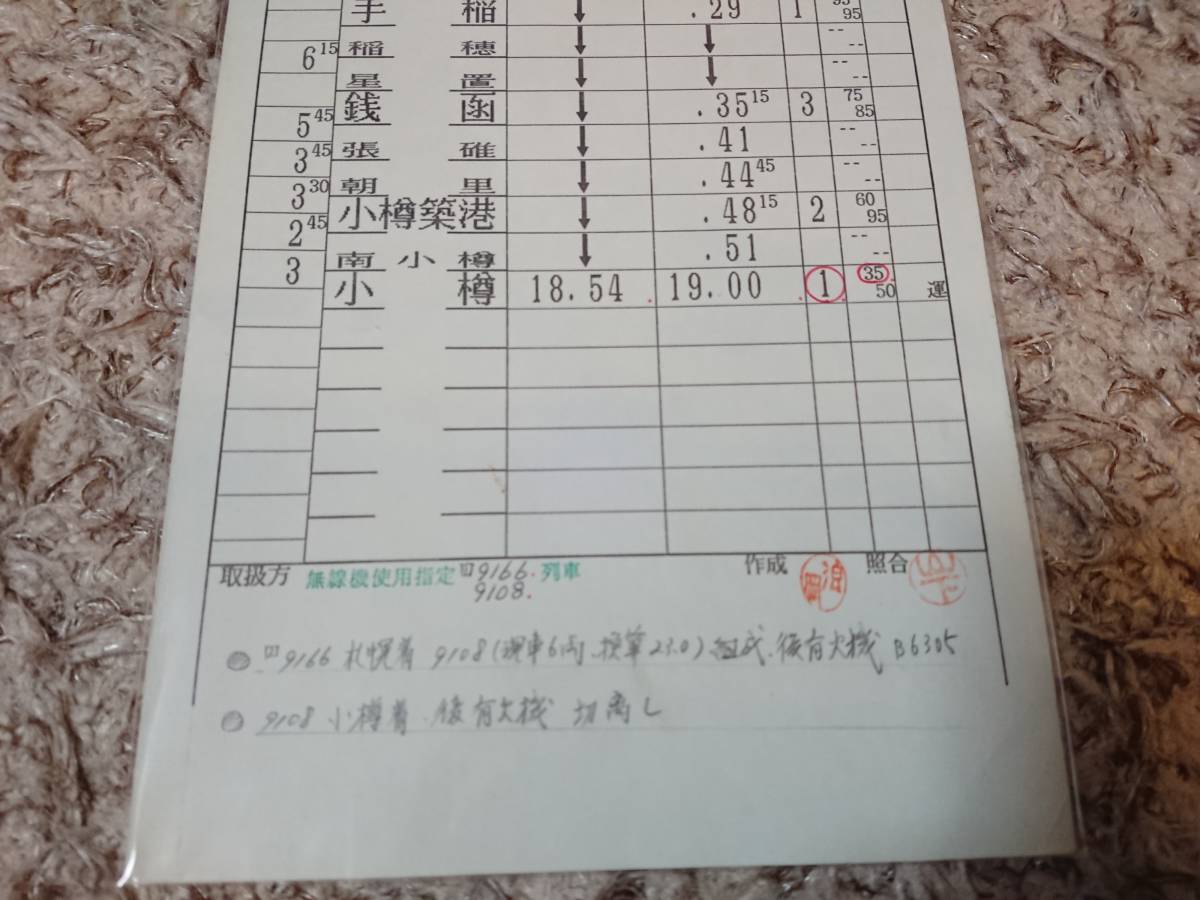 手稲 ↓ .29 1 95
6 15 稲穂 ↓ ↓ -- --
星置 ↓ ↓ -- --
銭函 ↓ .35 15 3 75 85
5 45
張碓 ↓ .41 -- --
3 45
朝里 ↓ .44 45 -- --
3 30
小樽築港 ↓ .48 15 2 60 95
2 45
南小樽 ↓ .51 -- --
3
小樽 18.54 19.00 1 35 50 運
取扱方 無線機使用指定 回9166. 列車 作成 照合 山下
9108.
回9166 札幌着 9108(現車6両.換算23.0).組成.後有火機 B6305
9108 小樽着.後有火機 切離し